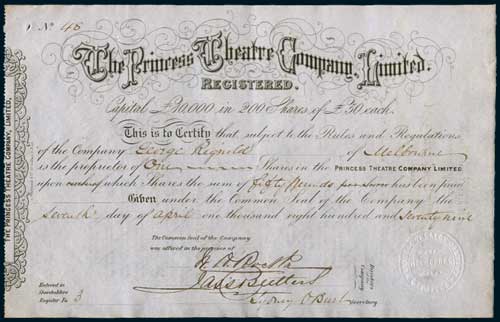 No 46
The Princess Theatre Company, Limited.
REGISTERED.
Capital £10,000 in 200 Shares of £50 each.
This is to Certify that subject to the Rules and Regulations
of the Company George Rignold of Melbourne
is the proprietor of One Shares in the PRINCESS THEATRE COMPANY LIMITED
upon which Shares the sum of fifty pounds per Share has been paid
Given under the Common Seal of the Company the
Seventh day of April one thousand eight hundred and Seventy nine
The Common Seal of the Company
was affixed in the presence of
Entered in
Shareholders
Register Fo 3
Secretary
THE PRINCESS THEATRE COMPANY, LIMITED.